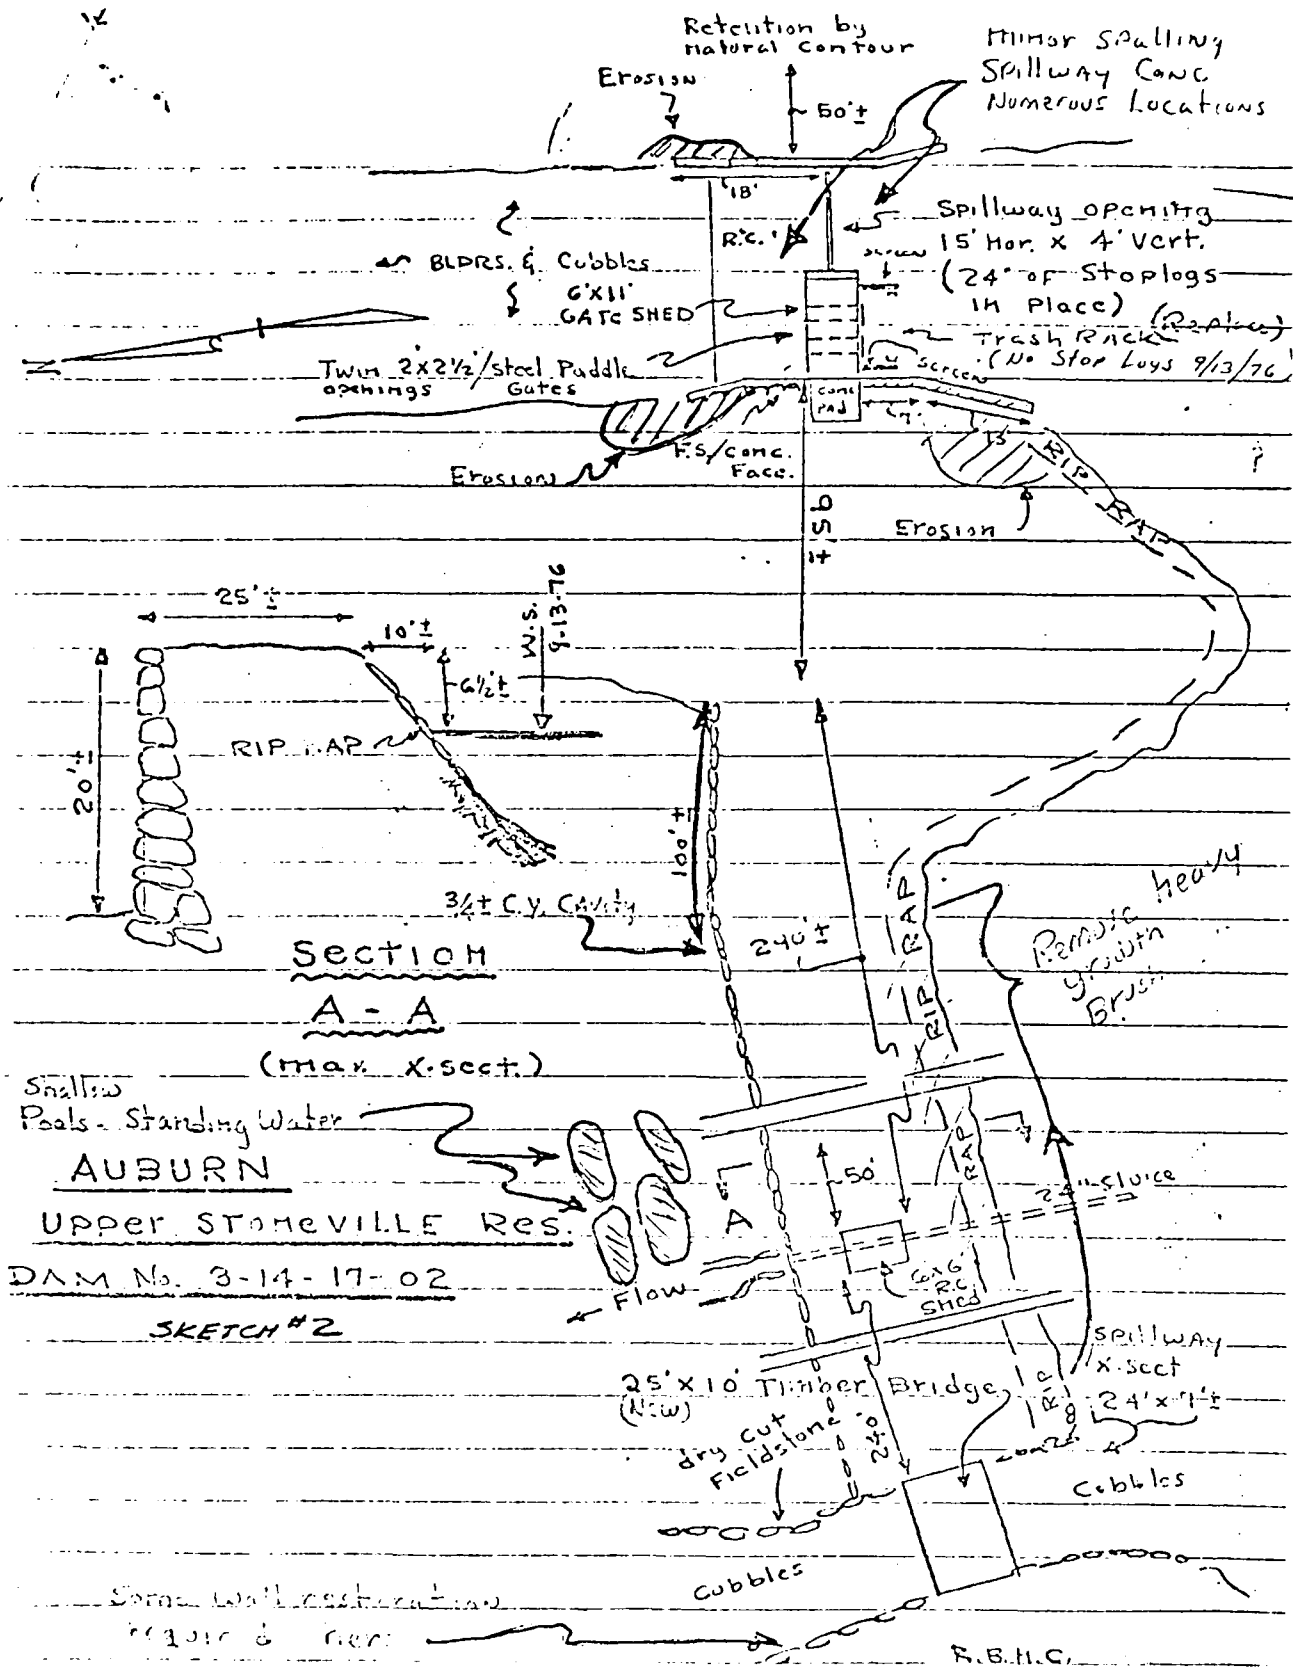 Retention by
natural contour
Erosion
50'±
Minor Spalling
Spillway Conc
Numerous Locations
18'
R.C.
Spillway opening
15' Hor. x 4' Vert.
(24" of Stoplogs
in Place)
screen
BLDRS. & Cobbles
6'x11'
GATE SHED
Trash Rack (Replace)
(No Stop Logs 9/13/76)
screen
Twin 2'x2½'/steel Paddle
openings Gates
Conc
PAD
13'
F.S./conc.
Face.
Erosion
Erosion
RIP RAP
?
95'±
25'±
10'±
6½'±
W.S.
9-13-76
20'±
RIP RAP
100'±
¾± C.Y. Cavity
240'±
RIP RAP
Remove heavy
growth
Brush
Section
A - A
(max x-sect.)
Shallow
Pools - Standing Water
AUBURN
Upper STONEVILLE Res.
DAM No. 3-14-17-02
SKETCH #2
A
50'
RAP
24" sluice
6x6
R.C.
Shed
Flow
Spillway
x-sect
24' x
25' x 10' Timber Bridge
(New)
RIP
240'
dry cut
Fieldstone
Cobbles
Cobbles
Some wall restoration
required here
R.B.H.C.